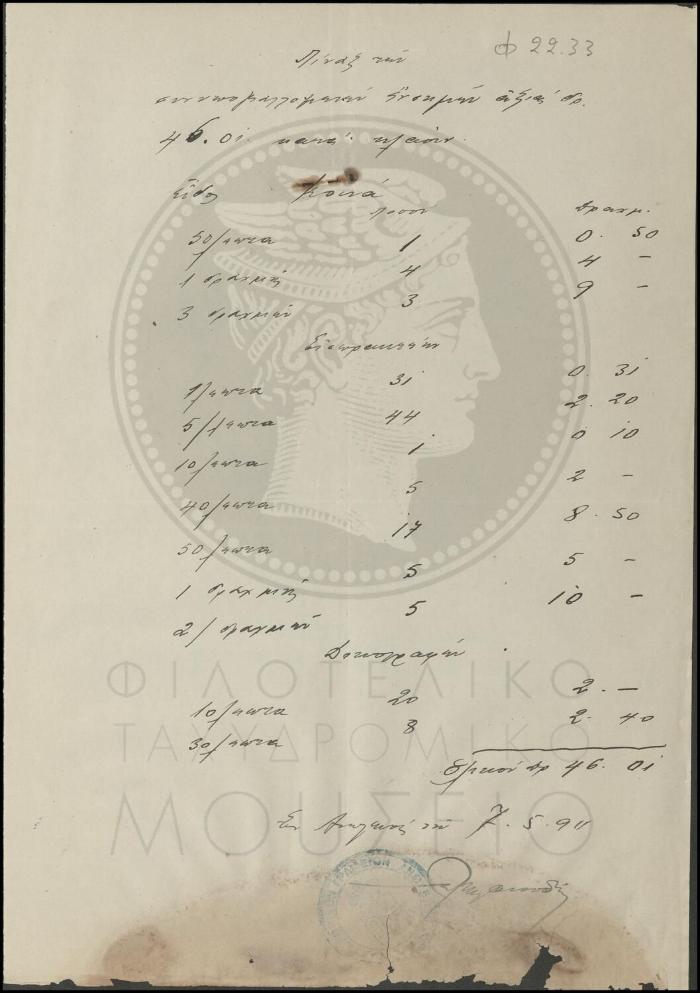 φ 22.33
Πίναξ των
συνυποβαλλομένων ενσήμων αξίας δρ.
46.01 κατά κλάσιν.
Είδος Κοινά
ποσόν δραχμ.
50/λεπτα 1 0. 50
1 δραχμής 4 4 -
3 δραχμών 3 9 -
Εισπρακτέων
1/λεπτα 31 0. 31
5/λεπτα 44 2. 20
10/λεπτα 1 0 10
40/λεπτα 5 2 -
50/λεπτα 17 8. 50
1 δραχμής 5 5 -
2/δραχμών 5 10 -
10/λεπτα 20 2. -
30/λεπτα 8 2. 40
Όλικον δρ 46. 01
Εν Ανωγείοις τη 7. 5. 911
ΦΙΛΟΤΕΛΙΚΟ
ΤΑΧΥΔΡΟΜΙΚΟ
ΜΟΥΣΕΙΟ